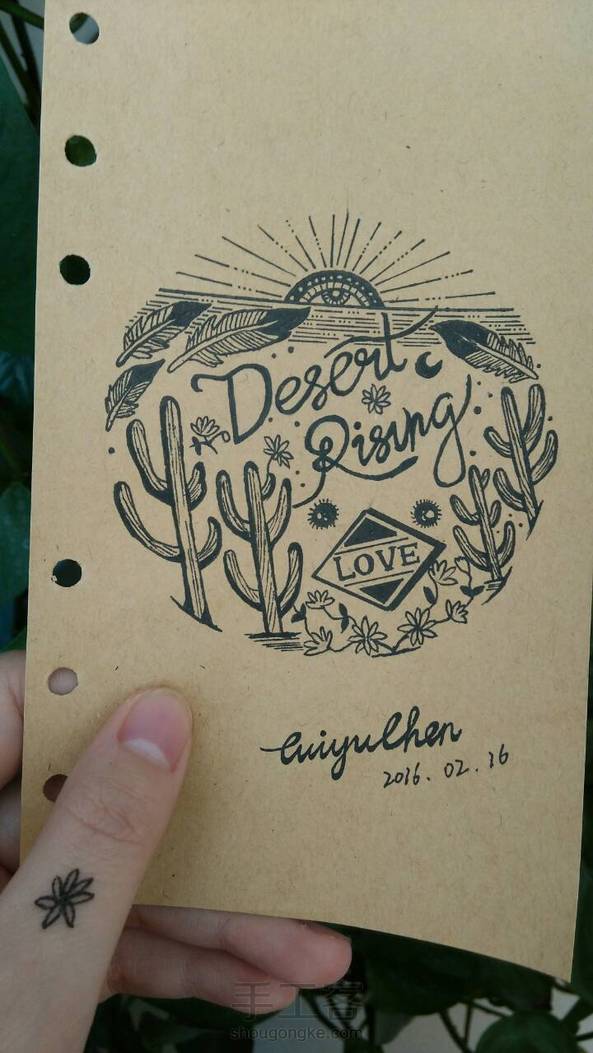 Desert
Rising
LOVE
CuiyuChen
2016.02.16
手工客
shougongke.com